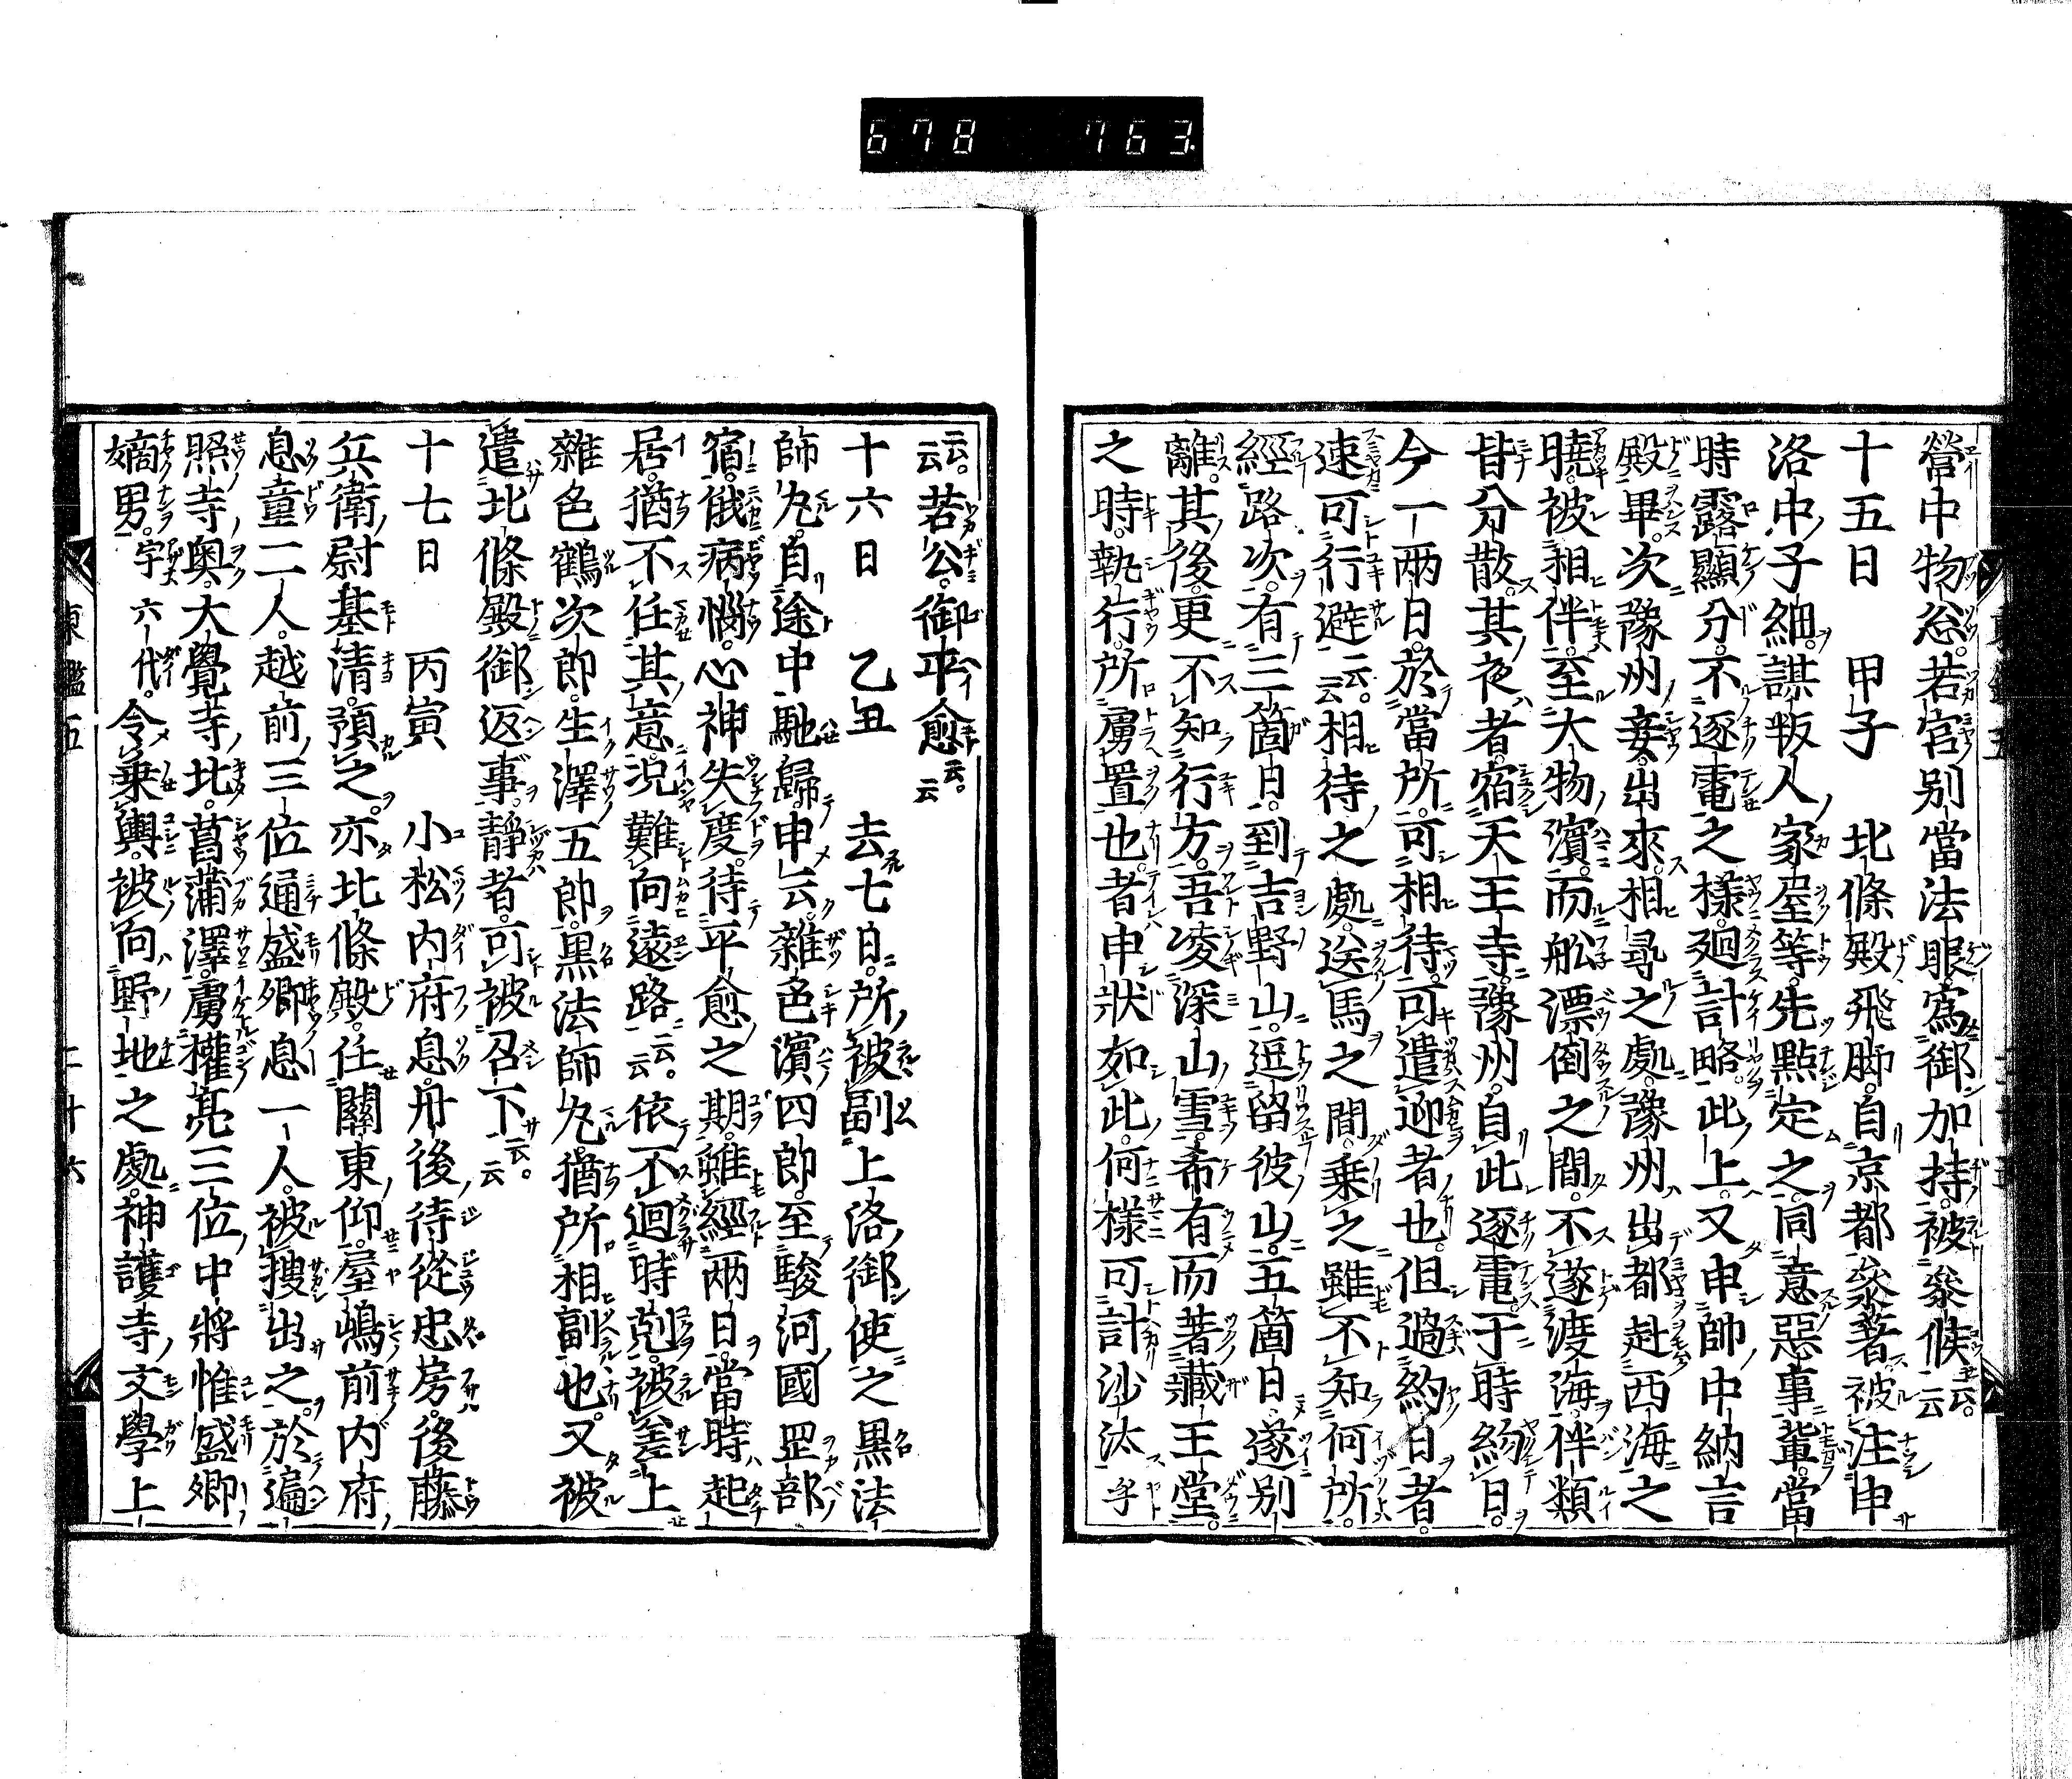 678 763
營中物忩。若宮別當法眼爲御加持。被參候云云。
十五日 甲子 北條殿飛脚。自京都參著。被注申
洛中子細。謀叛人家屋等。先點定之。同意惡事輩。當
時露顯分。不逐電之樣。廻計略。此上。又申帥中納言
殿畢。次豫州妾。出來。相尋之處。豫州出都赴西海之
曉。被相伴。至大物濱。而舩漂倒之間。不遂渡海。伴類
皆分散。其夜者。宿天王寺。豫州。自此逐電。于時約日。
今一兩日。於當所。可相待。可遣迎者也。但過約日者。
速可行避云云。相待之處。送馬之間。乘之雖不知何所。
經路次。有三箇日。到吉野山。逗留彼山。五箇日。遂別
離。其後。更不知行方。吾凌深山雪。希有而著藏王堂。
之時。執行。所虜置也者。申狀如此。何樣可計沙汰乎
云云。若公。御平愈云云。
十六日 乙丑 去七日。所被副上洛御使之黑法
師丸。自途中馳歸。申云。雜色濱四郎。至駿河國罡部
宿。俄病惱。心神失度。待平愈之期。雖經兩日。當時起
居。猶不任其意。况難向遠路云云。依不迴時剋。被差上
雜色鶴次郎。生澤五郎。黑法師丸。猶所相副也。又被
遣北條殿御返事。靜者。可被召下云云。
十七日 丙寅 小松内府息。丹後侍從忠房。後藤
兵衛尉基清。預之。亦北條殿。任關東仰。屋嶋前内府
息童二人。越前三位通盛卿息一人。被搜出之。於遍
照寺奥。大覺寺北。菖蒲澤。虜權亮三位中將惟盛卿
嫡男。字六代。令乘輿。被向野地之處。神護寺文學上
東鑑五 二十六